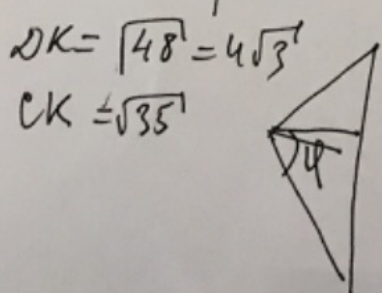 DK = √48 = 4√3
CK = √35
φ